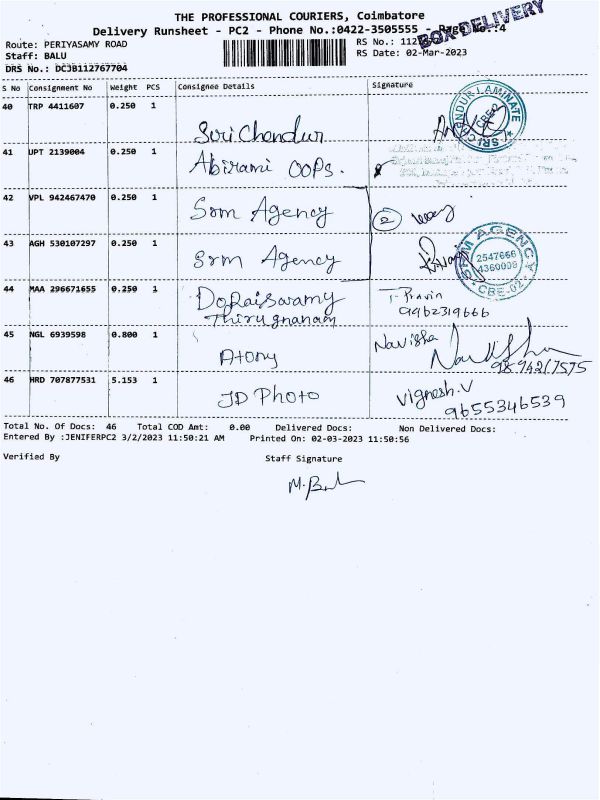 THE PROFESSIONAL COURIERS, Coimbatore
Delivery Runsheet - PC2 - Phone No.:0422-3505555 - Page No.:4
BOX DELIVERY
Route: PERIYASAMY ROAD
RS No.:
Staff: BALU
RS Date: 02-Mar-2023
DRS No.: DCJB112767704
S No Consignment No Weight PCS Consignee Details Signature
40 TRP 4411607 0.250 1 Sri Chendur
SRI CHENDUR LAMINATE CBE-2
41 UPT 2139004 0.250 1 Abirami OOPs.
42 VPL 942467470 0.250 1 Srm Agency
43 AGH 530107297 0.250 1 Srm Agency
SRM AGENCY 2547666 CBE-02
44 MAA 296671655 0.250 1 Doraiswamy Thirugnanam T. Pravin 9962319666
45 NGL 6939598 0.800 1 Atony Navisha
46 HRD 707877531 5.153 1 JD Photo Vignesh.V 9655346539
Total No. Of Docs: 46 Total COD Amt: 0.00 Delivered Docs: Non Delivered Docs:
Entered By :JENIFERPC2 3/2/2023 11:50:21 AM Printed On: 02-03-2023 11:50:56
Verified By Staff Signature